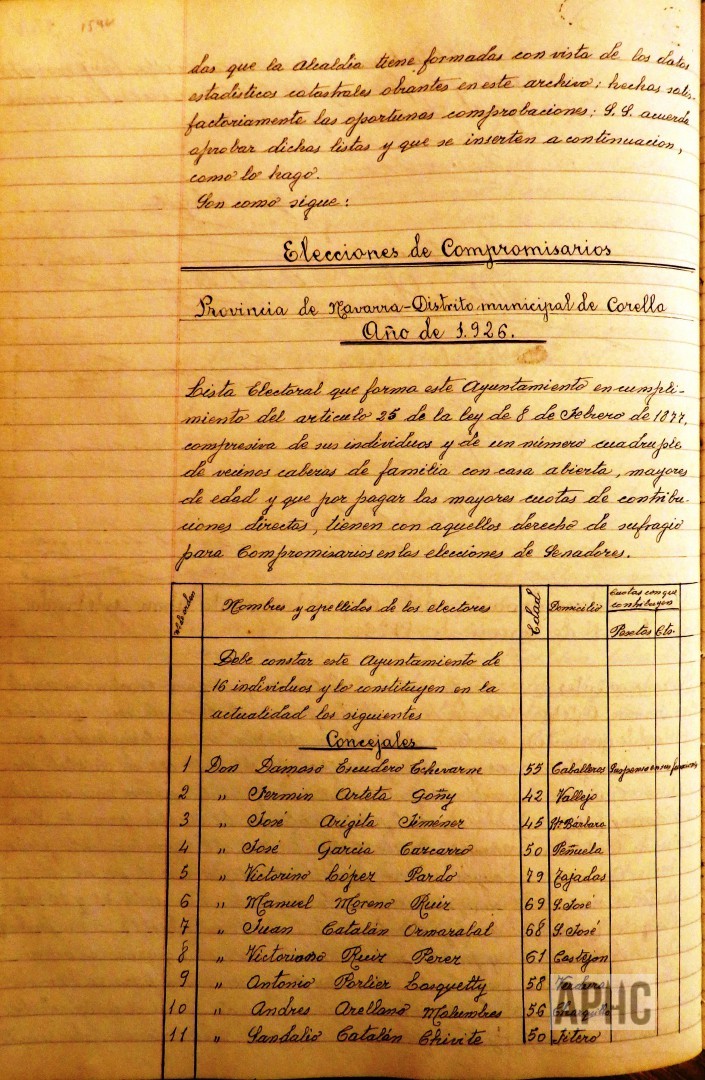 das que la Alcaldia tiene formadas con vista de los datos
estadisticos catastrales obrantes en este archivo; hechas satis-
factoriamente las oportunas comprobaciones; S. S. acuerda
aprobar dichas listas y que se inserten a continuacion,
como lo hago.
Son como sigue:
Elecciones de Compromisarios
Provincia de Navarra-Distrito municipal de Corella
Año de 1.926.
Lista Electoral que forma este Ayuntamiento en cumpli-
miento del articulo 25 de la ley de 8 de Febrero de 1877,
compresiva de sus individuos y de un número cuadruple
de vecinos cabezas de familia con casa abierta, mayores
de edad y que por pagar las mayores cuotas de contribu-
ciones directas, tienen con aquellos derecho de sufragio
para Compromisarios en las elecciones de Senadores.
Nombres y apellidos de los electores Edad Domicilio Cuotas con que contribuyen
Pesetas Cts.
Debe constar este Ayuntamiento de
16 individuos y lo constituyen en la
actualidad los siguientes
Concejales
1 Don Damaso Escudero Echevarne 55 Caballeros Suspenso en sus
2 " Fermin Arteta Goñy 42 Vallejo
3 " José Arigita Jiménez 45 Stª Bárbara
4 " José Garcia Cazcarro 50 Peñuela
5 " Victorino López Pardo 79 Tajadas
6 " Manuel Moreno Ruiz 69 S. José
7 " Juan Catalán Ormazabal 68 S. José
8 " Victoriano Ruiz Perez 61 Castejon
9 " Antonio Porlier Lasquetty 58
10 " Andres Arellano Malumbres 56
11 " Sandalio Catalán Chivite 50 Fitero
APHC